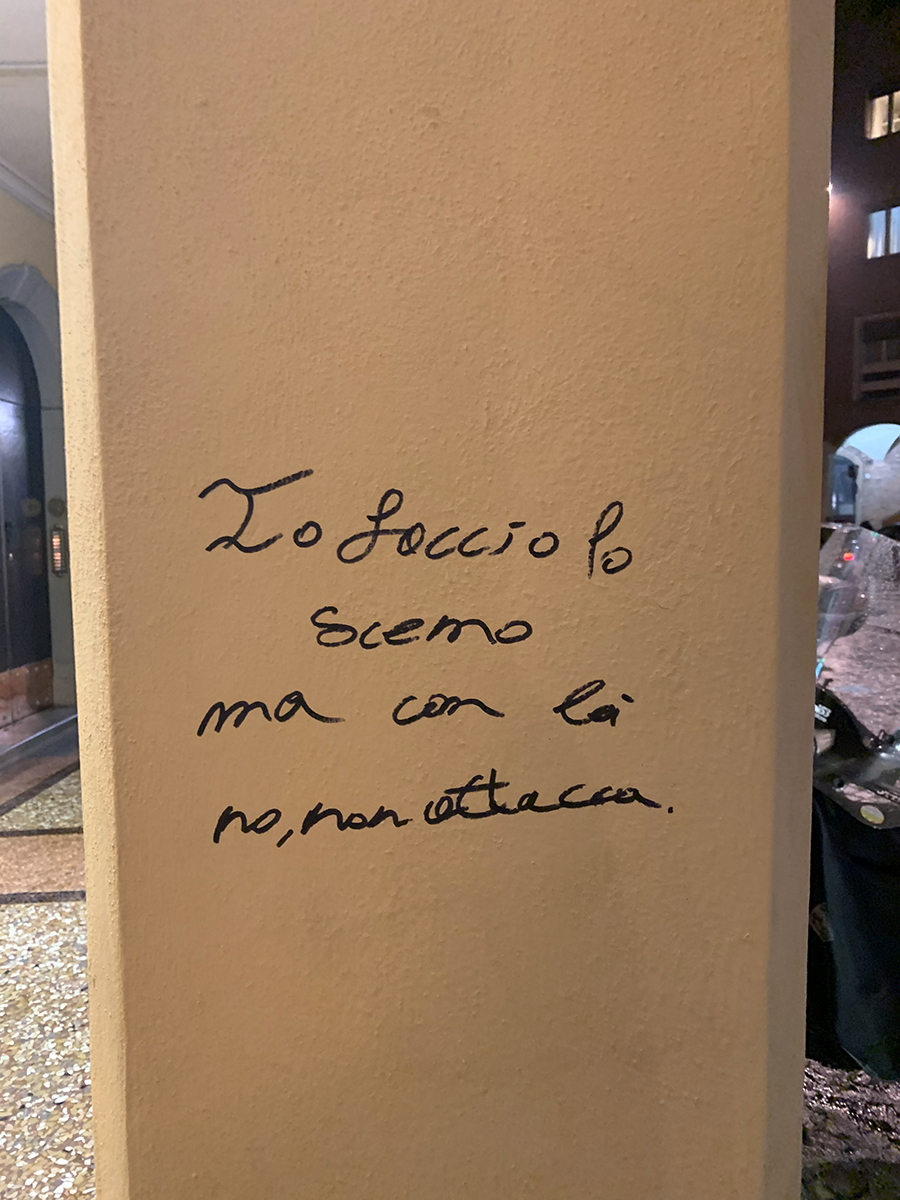 Io faccio lo
scemo
ma con lá
no, non attacca.